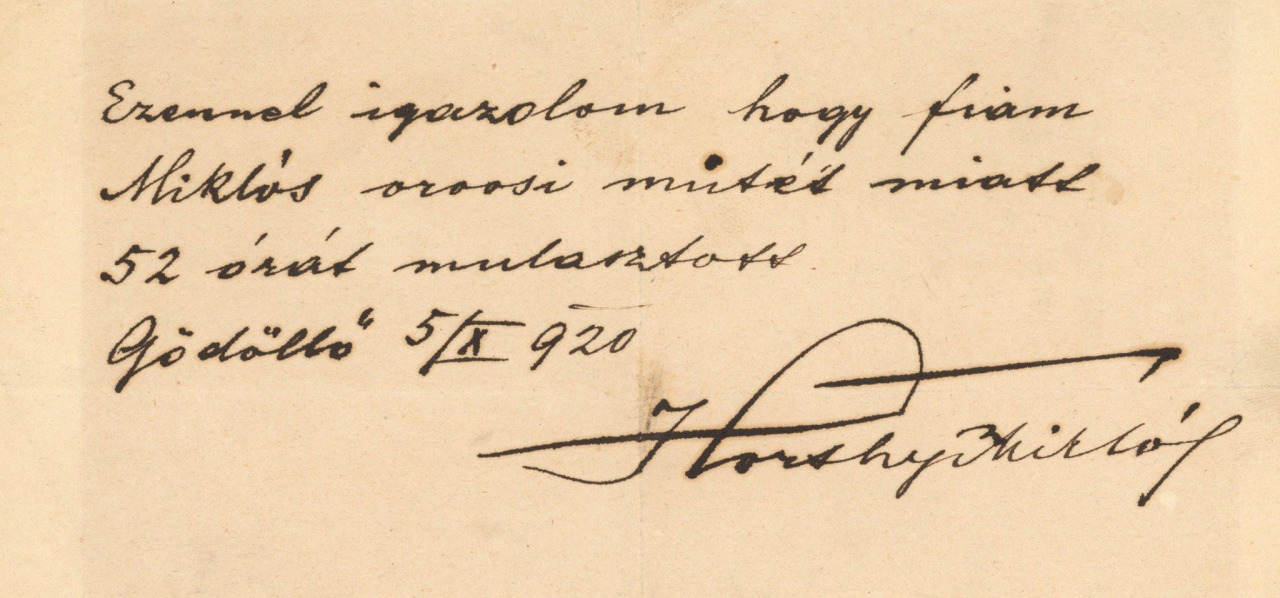 Ezennel igazolom hogy fiam
Miklós orvosi mütét miatt
52 órát mulasztott
Gödöllő 5/X 920
Horthy Miklós